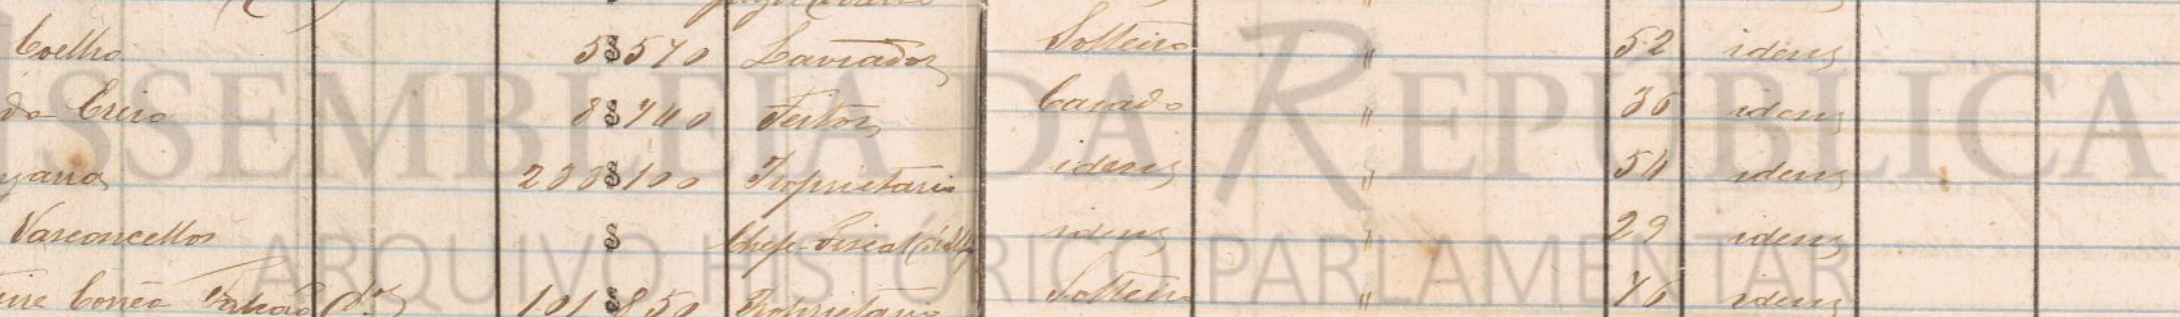 Coelho 5$570 Lavrador Solteiro " 52 idem
da Cruz 8$740 Feitor Casado " 36 idem
233$100 Proprietario idem " 54 idem
Vasconcellos $ Chefe Fiscal idem " 29 idem
Corrêa Falcão 101$850 Proprietario Solteiro " 46 idem
ASSEMBLEIA DA REPÚBLICA
ARQUIVO HISTÓRICO PARLAMENTAR